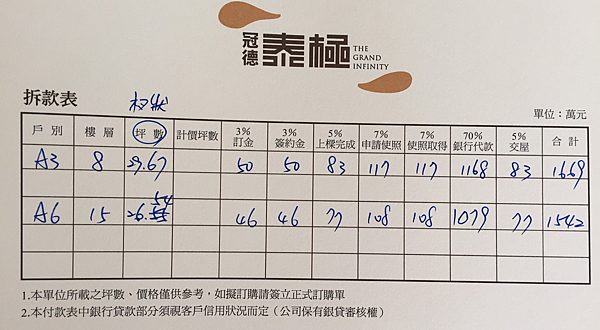 冠德 泰極 THE GRAND INFINITY
拆款表
權狀
單位：萬元
戶別 樓層 坪數 計價坪數 3%訂金 3%簽約金 5%上樑完成 7%申請使照 7%使照取得 70%銀行代款 5%交屋 合計
A3 8 29.67 50 50 83 117 117 1168 83 1669
A6 15 26.54 46 46 77 108 108 1079 77 1542
1.本單位所載之坪數、價格僅供參考，如擬訂購請簽立正式訂購單
2.本付款表中銀行貸款部分須視客戶信用狀況而定（公司保有銀貸審核權）